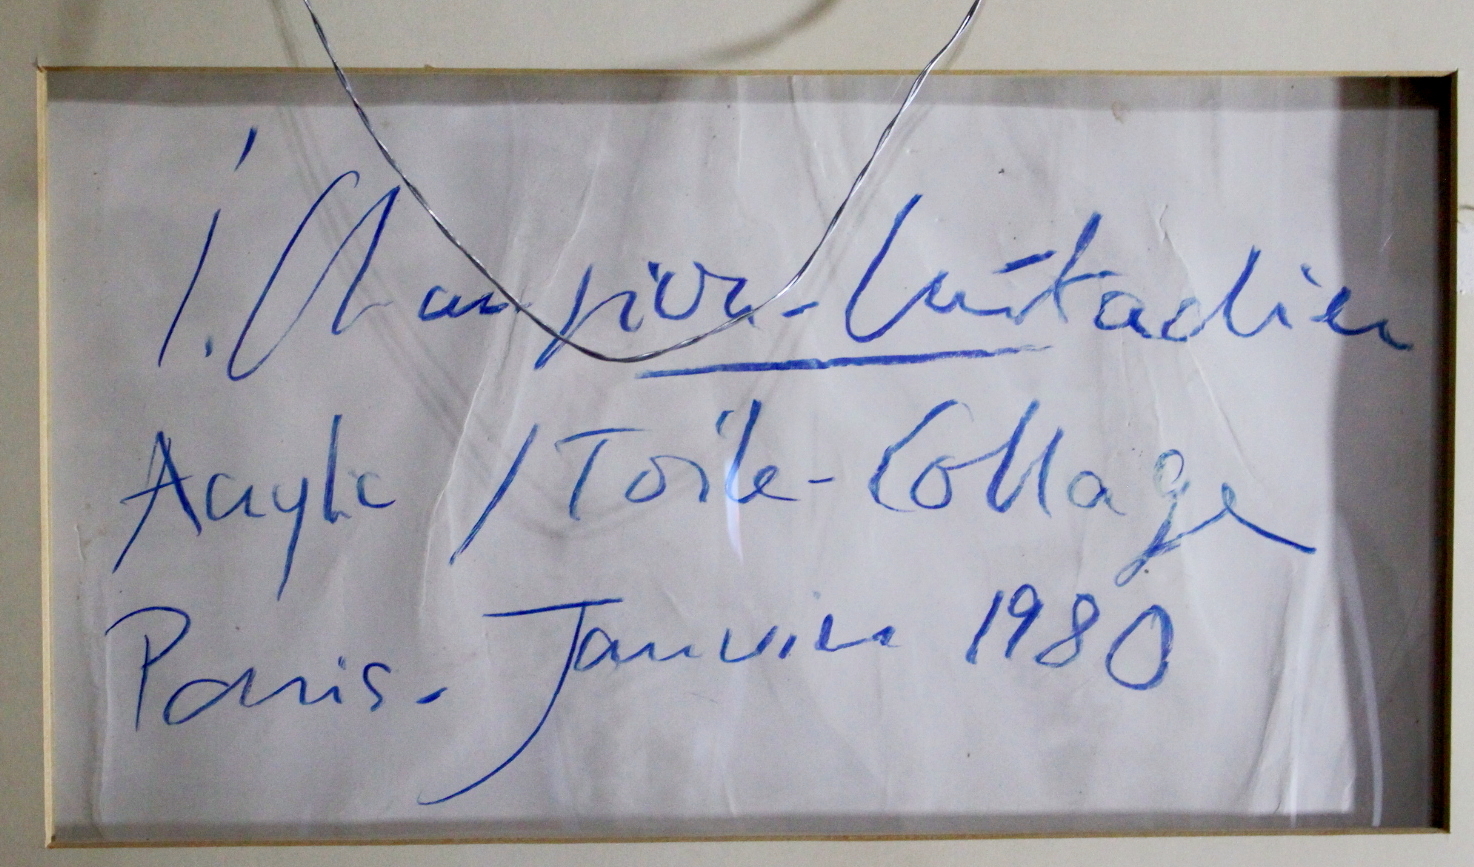 I. Champion-Métadier
Acrylic / Toile-Collage
Paris. Janvier 1980